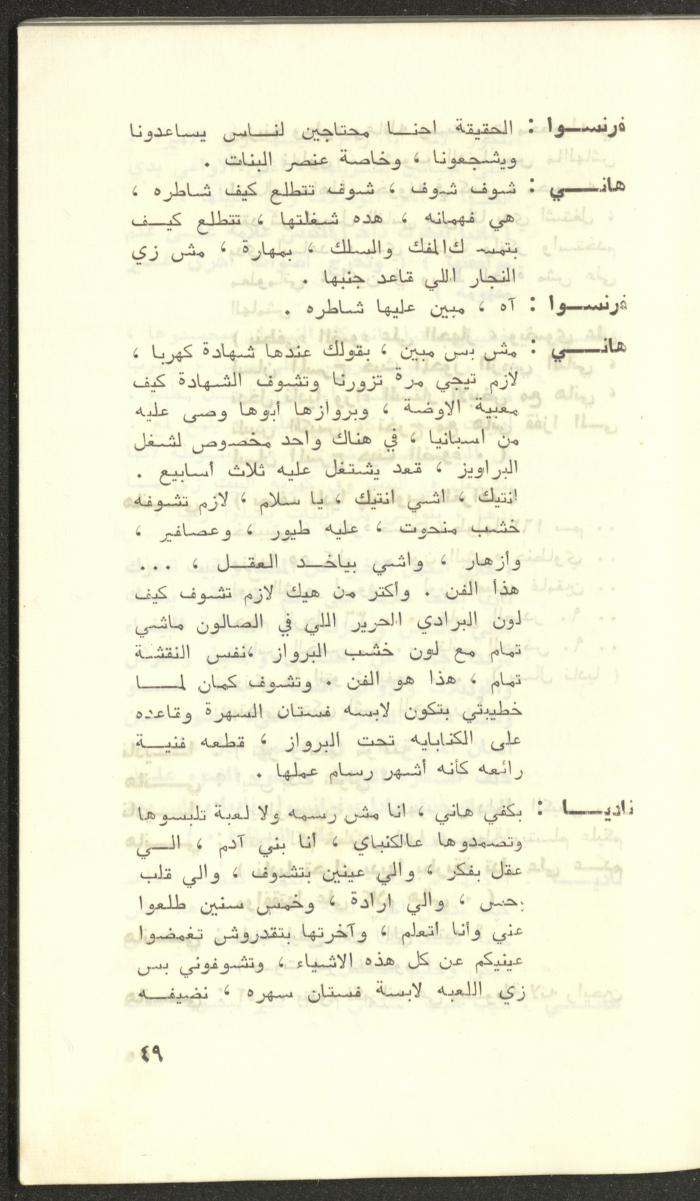 فرنسوا : الحقيقة احنا محتاجين لناس يساعدونا
ويشجعونا ، وخاصة عنصر البنات .
هاني : شوف شوف ، شوف تتطلع كيف شاطره ،
هي فهمانه ، هده شغلتها ، تتطلع كيف
بتمسك المفك والسلك ، بمهارة ، مش زي
النجار اللي قاعد جنبها .
فرنسوا : آه ، مبين عليها شاطره .
هاني : مش بس مبين ، بقولك عندها شهادة كهربا ،
لازم تيجي مرة تزورنا وتشوف الشهادة كيف
معبية الاوضة ، وبروازها أبوها وصى عليه
من اسبانيا ، في هناك واحد مخصوص لشغل
البراويز ، قعد يشتغل عليه ثلاث أسابيع .
انتيك ، اشي انتيك ، يا سلام ، لازم تشوفه
خشب منحوت ، عليه طيور ، وعصافير ،
وأزهار ، واشي بياخد العقل ، ...
هذا الفن . وأكتر من هيك لازم تشوف كيف
لون البرادي الحرير اللي في الصالون ماشي
تمام مع لون خشب البرواز ،نفس النقشة
تمام ، هذا هو الفن . وتشوف كمان لما
خطيبتي بتكون لابسه فستان السهرة وقاعده
على الكنابايه تحت البرواز ، قطعه فنية
رائعه كأنه أشهر رسام عملها .
ناديا : بكفي هاني ، انا مش رسمه ولا لعبة تلبسوها
وتصمدوها عالكنباي ، أنا بني آدم ، الي
عقل بفكر ، والي عينين بتشوف ، والي قلب
بحس ، والي ارادة ، وخمس سنين طلعوا
عني وأنا اتعلم ، وآخرتها بتقدروش تغمضوا
عينيكم عن كل هذه الاشياء ، وتشوفوني بس
زي اللعبه لابسة فستان سهره ، نضيفه
٤٩